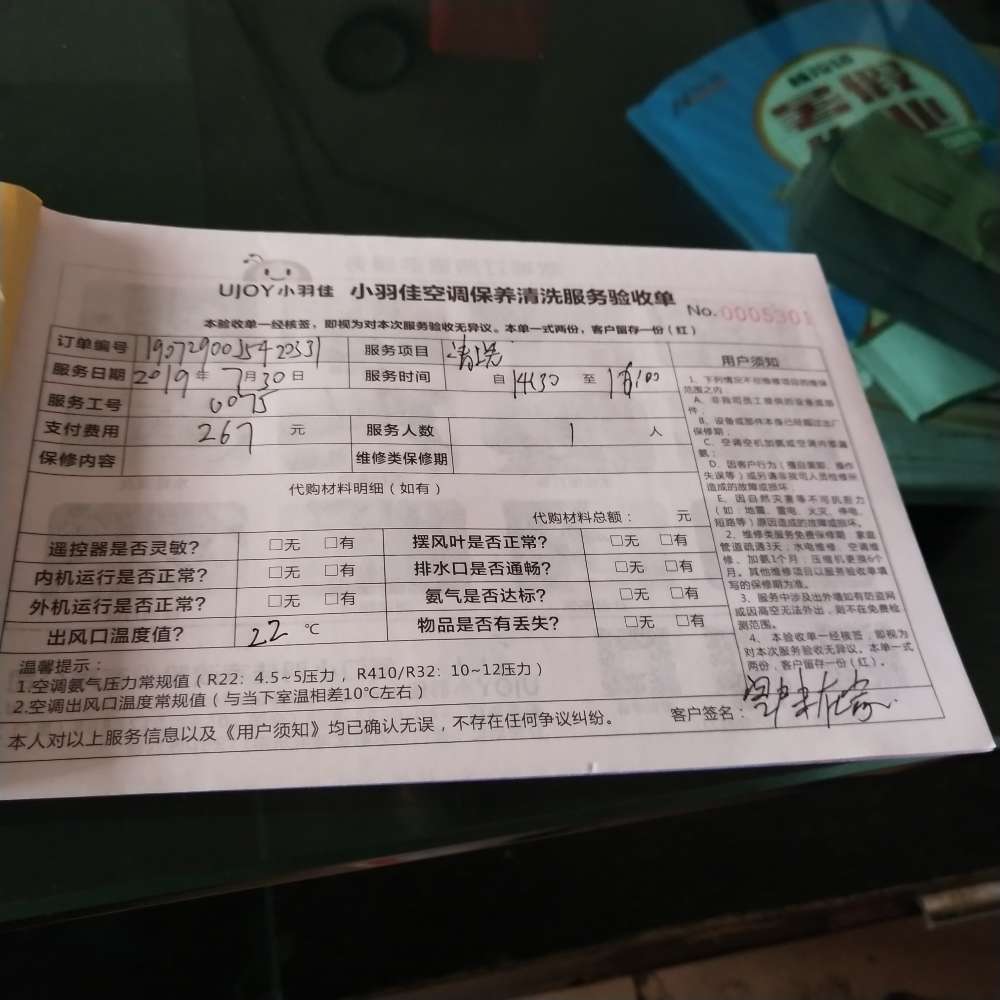 暑假
UJOY小羽佳 小羽佳空调保养清洗服务验收单
No.0005301
本验收单一经核签，即视为对本次服务验收无异议。本单一式两份，客户留存一份（红）
订单编号 1907290035420331 服务项目 清洗
服务日期 2019年7月30日 服务时间 自14:30至
服务工号 0075
支付费用 267 元 服务人数 1 人
保修内容 维修类保修期
代购材料明细（如有）
代购材料总额： 元
遥控器是否灵敏? □无 □有 摆风叶是否正常? □无 □有
内机运行是否正常? □无 □有 排水口是否通畅? □无 □有
外机运行是否正常? □无 □有 氨气是否达标? □无 □有
出风口温度值? 22 ℃ 物品是否有丢失? □无 □有
温馨提示：
1.空调氨气压力常规值（R22: 4.5~5压力，R410/R32: 10~12压力）
2.空调出风口温度常规值（与当下室温相差10℃左右）
本人对以上服务信息以及《用户须知》均已确认无误，不存在任何争议纠纷。
用户须知
1、下列情况不在维修项目的维保
范围之内
A、非我司员工提供的设备或部
件；
B、设备或部件本身已经超过出厂
保修期；
C、空调空机加氨或空调内
氨；
D、因客户行为（擅自 操作
失误等）或另请非我司人员检修所
造成的故障或损坏；
E、因自然灾害等不可抗拒力
（如：地震、雷电、火灾、停电、
短路等）原因造成的故障或损坏。
2、维修类服务免费保修期：家庭
管道疏通3天，水电维修、空调维
修、加氨1个月；压缩机更换6个
月。其他维修项目以服务验收单填
写的保修期为准。
3、服务中涉及出外墙如有防盗网
或因高空无法外出，则不在免费检
测范围。
4、本验收单一经核签，即视为
对本次服务验收无异议。本单一式
两份，客户留存一份（红）。
客户签名：